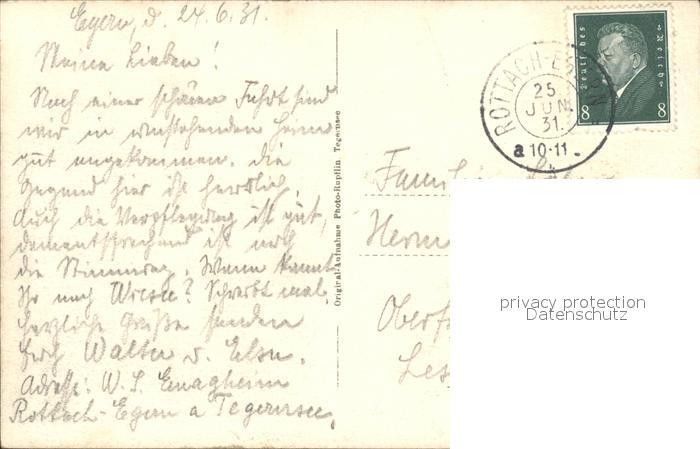 Egern, d. 24.6.31.
Meine Lieben!
Nach einer schönen Fahrt sind
wir in umstehenden Heim
gut angekommen. Die
Gegend hier ist herrlich.
Auch die Verpflegung ist gut,
dementsprechend ist auch
die Stimmung. Wann kommt
Ihr nach Wiessee? Schreibt mal
herzliche Grüße senden
Euch Walter u. Else.
Adresse: W. S.
Rottach-Egern a Tegernsee.
Original-Aufnahme Photo-Rupflin Tegernsee
Deutsches Reich
8 8
ROTTACH-EG
25
JUN
31.
a 10-11
Famili
Herm
Oberf
privacy protection
Datenschutz